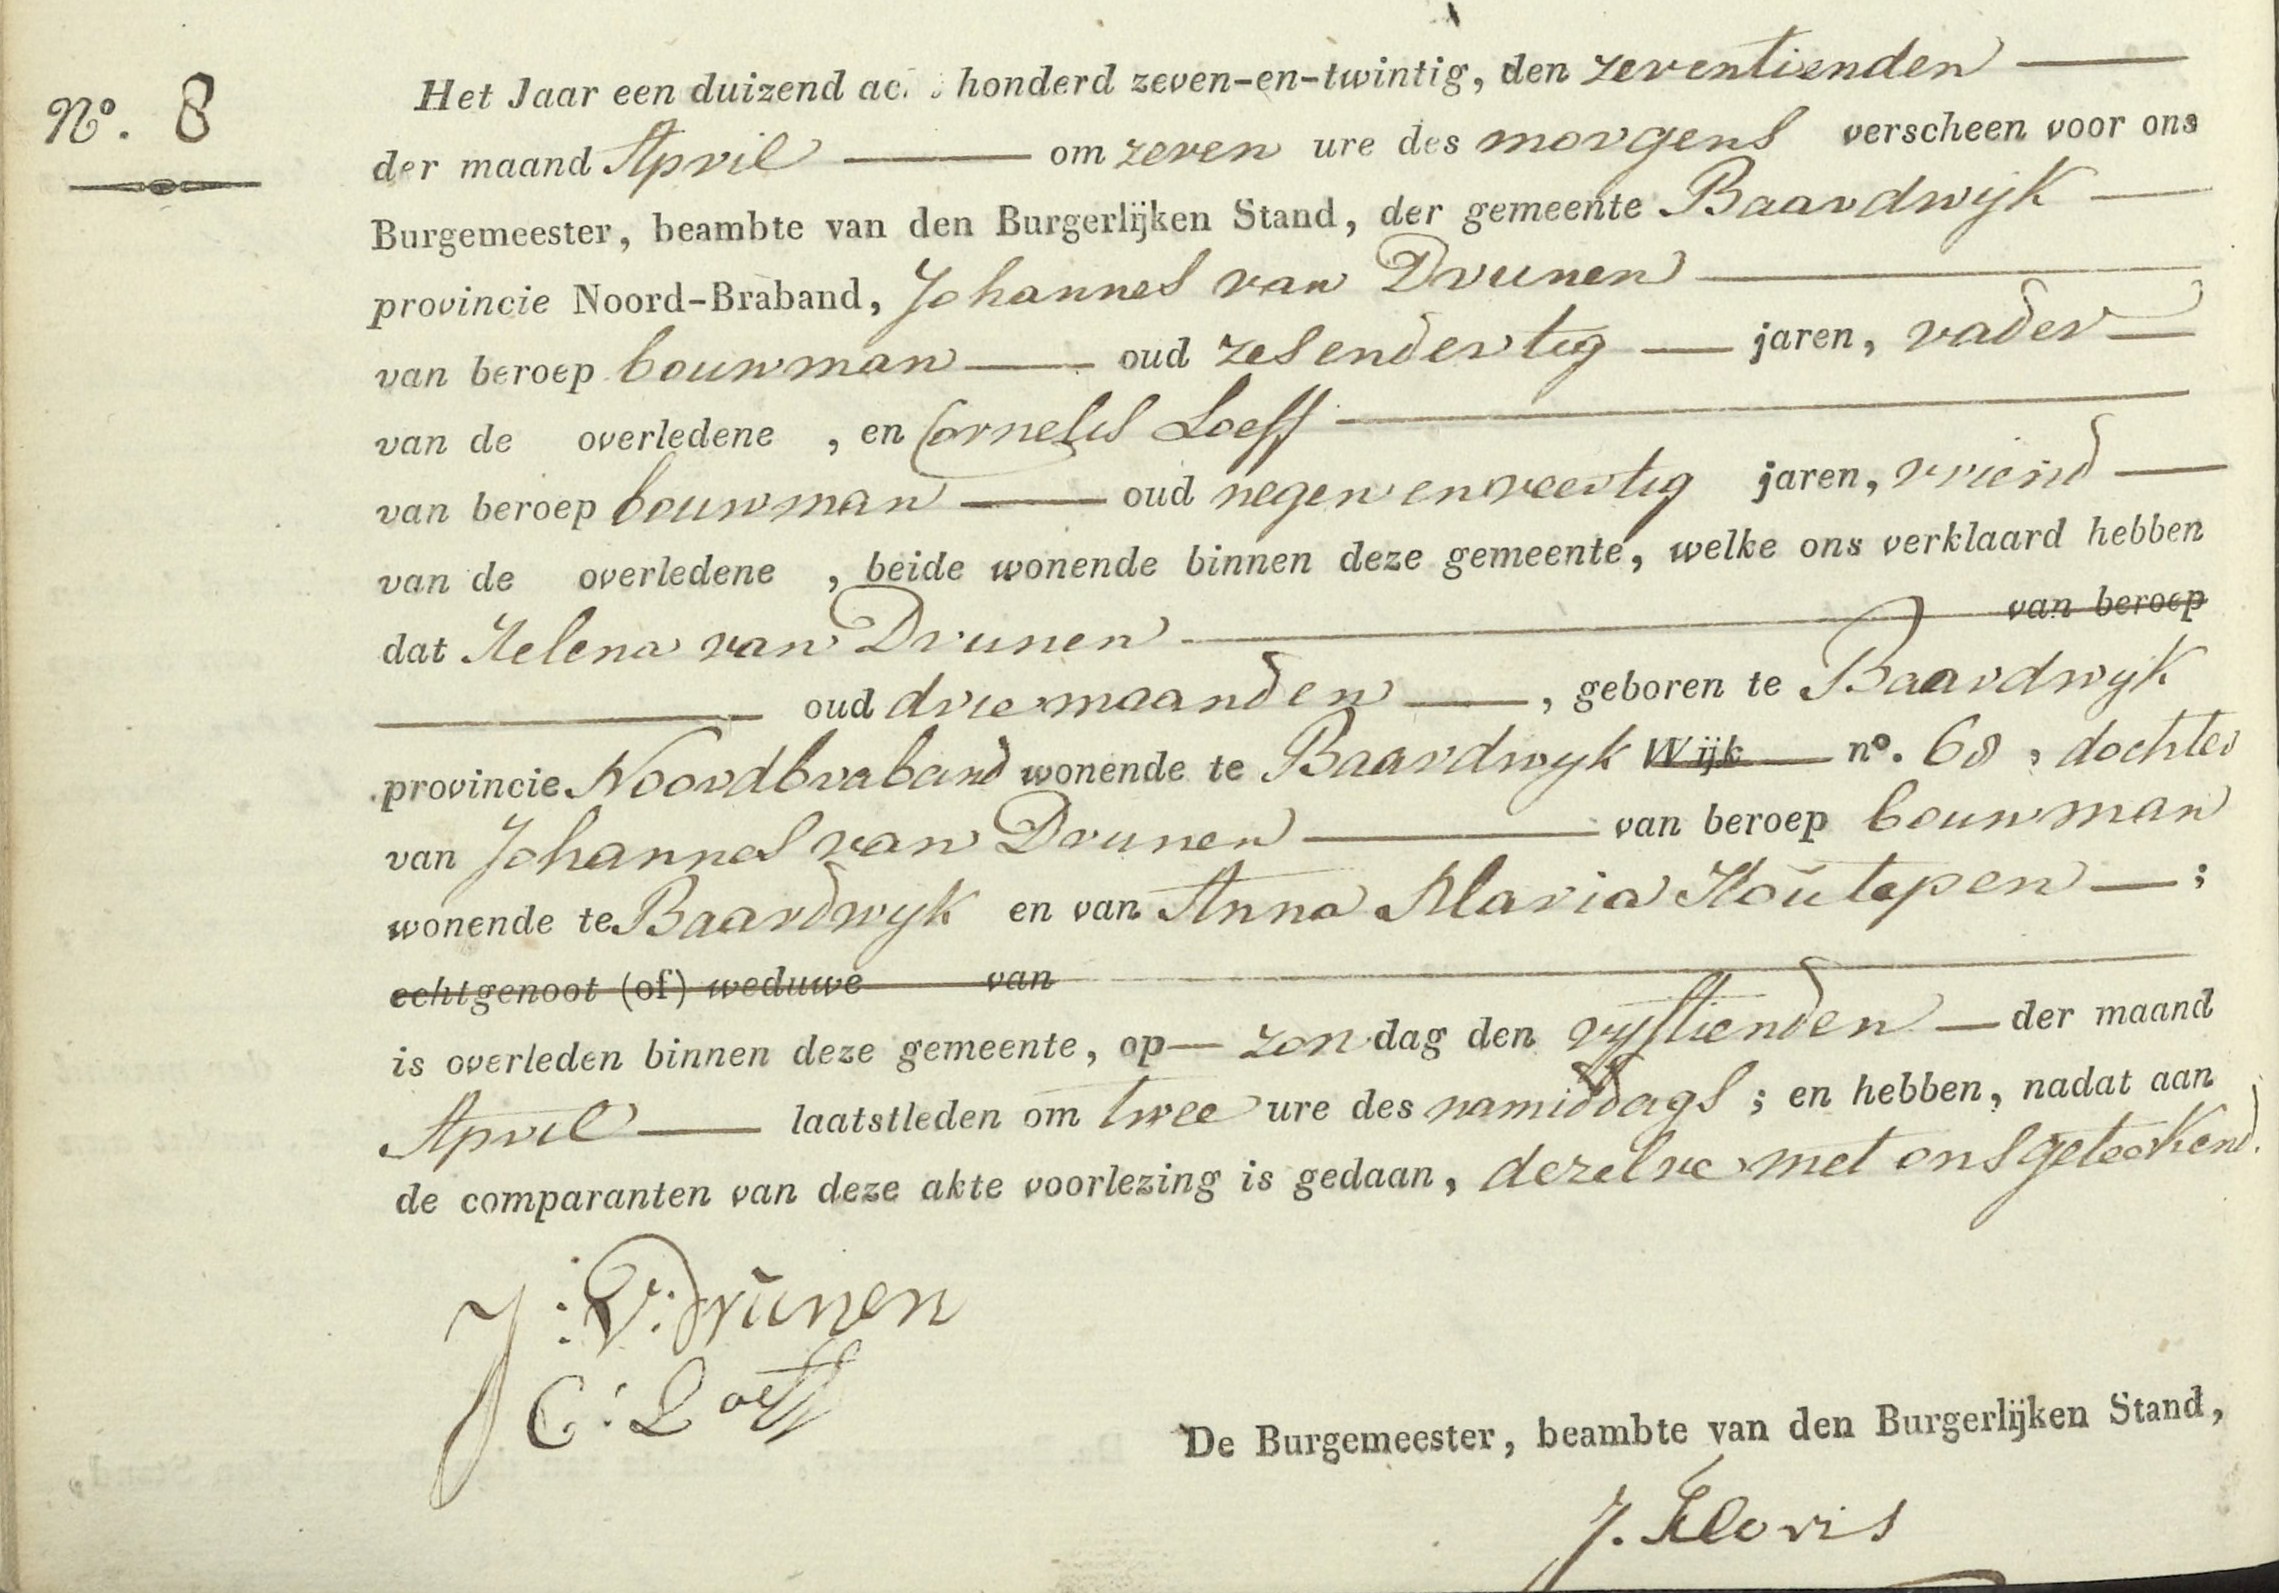 Nº. 8
Het Jaar een duizend ac honderd zeven-en-twintig, den zeventienden
der maand April om zeven ure des morgens verscheen voor ons
Burgemeester, beambte van den Burgerlijken Stand, der gemeente Baardwijk
provincie Noord-Braband, Johannes van Drunen
van beroep bouwman oud zesendertig jaren, vader
van de overledene , en Cornelis Loeff
van beroep bouwman oud negen en veertig jaren, vriend
van de overledene , beide wonende binnen deze gemeente, welke ons verklaard hebben
dat Helena van Drunen van beroep
oud drie maanden , geboren te Baardwijk
provincie Noordbraband wonende te Baardwyk Wijk nº. 68 , dochter
van Johannes van Drunen van beroep bouwman
wonende te Baardwyk en van Anna Maria Houtepen ;
echtgenoot (of) weduwe van
is overleden binnen deze gemeente, op zondag den vyftienden der maand
April laatstleden om twee ure des namiddags ; en hebben, nadat aan
de comparanten van deze akte voorlezing is gedaan, dezelve met ons geteekend.
J: V: Drunen
C: Loeff
De Burgemeester, beambte van den Burgerlijken Stand,
J. Kloris